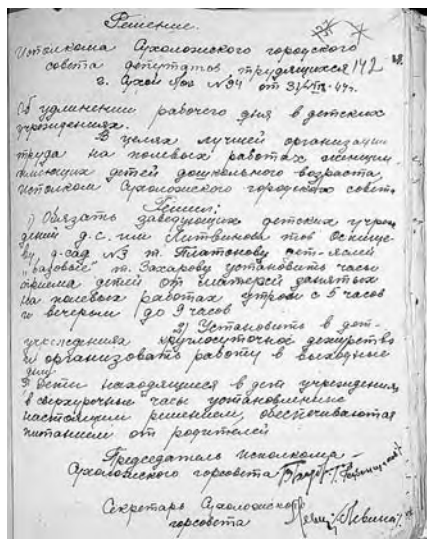 Решение.
Исполкома Сухоложского городского
совета депутатов трудящихся 142
г. Сухой Лог №94 от 31/VII-44г.
Об удлинении рабочего дня в детских
учреждениях.
В целях лучшей организации
труда на полевых работах женщин,
имеющих детей дошкольного возраста,
исполком Сухоложского городского совета
Решил:
1) Обязать заведующих детских учреж
дений д.с. им Литвинова тов
д-сад №3 т. Платонову дет-яслей
"базовые" т. Захарову установить часы
приема детей от матерей занятых
на полевых работах утром с 5 часов
и вечером до 9 часов
2) Установить в дет-
учреждениях круглосуточное дежурство
и организовать работу в выходные
дни.
3 Дети находящиеся в дет учреждениях
в сверхурочные часы установленные
настоящим решением, обеспечиваются
питанием от родителей
Председатель исполкома -
Сухоложского горсовета
Секретарь Сухоложского
горсовета /Левина/